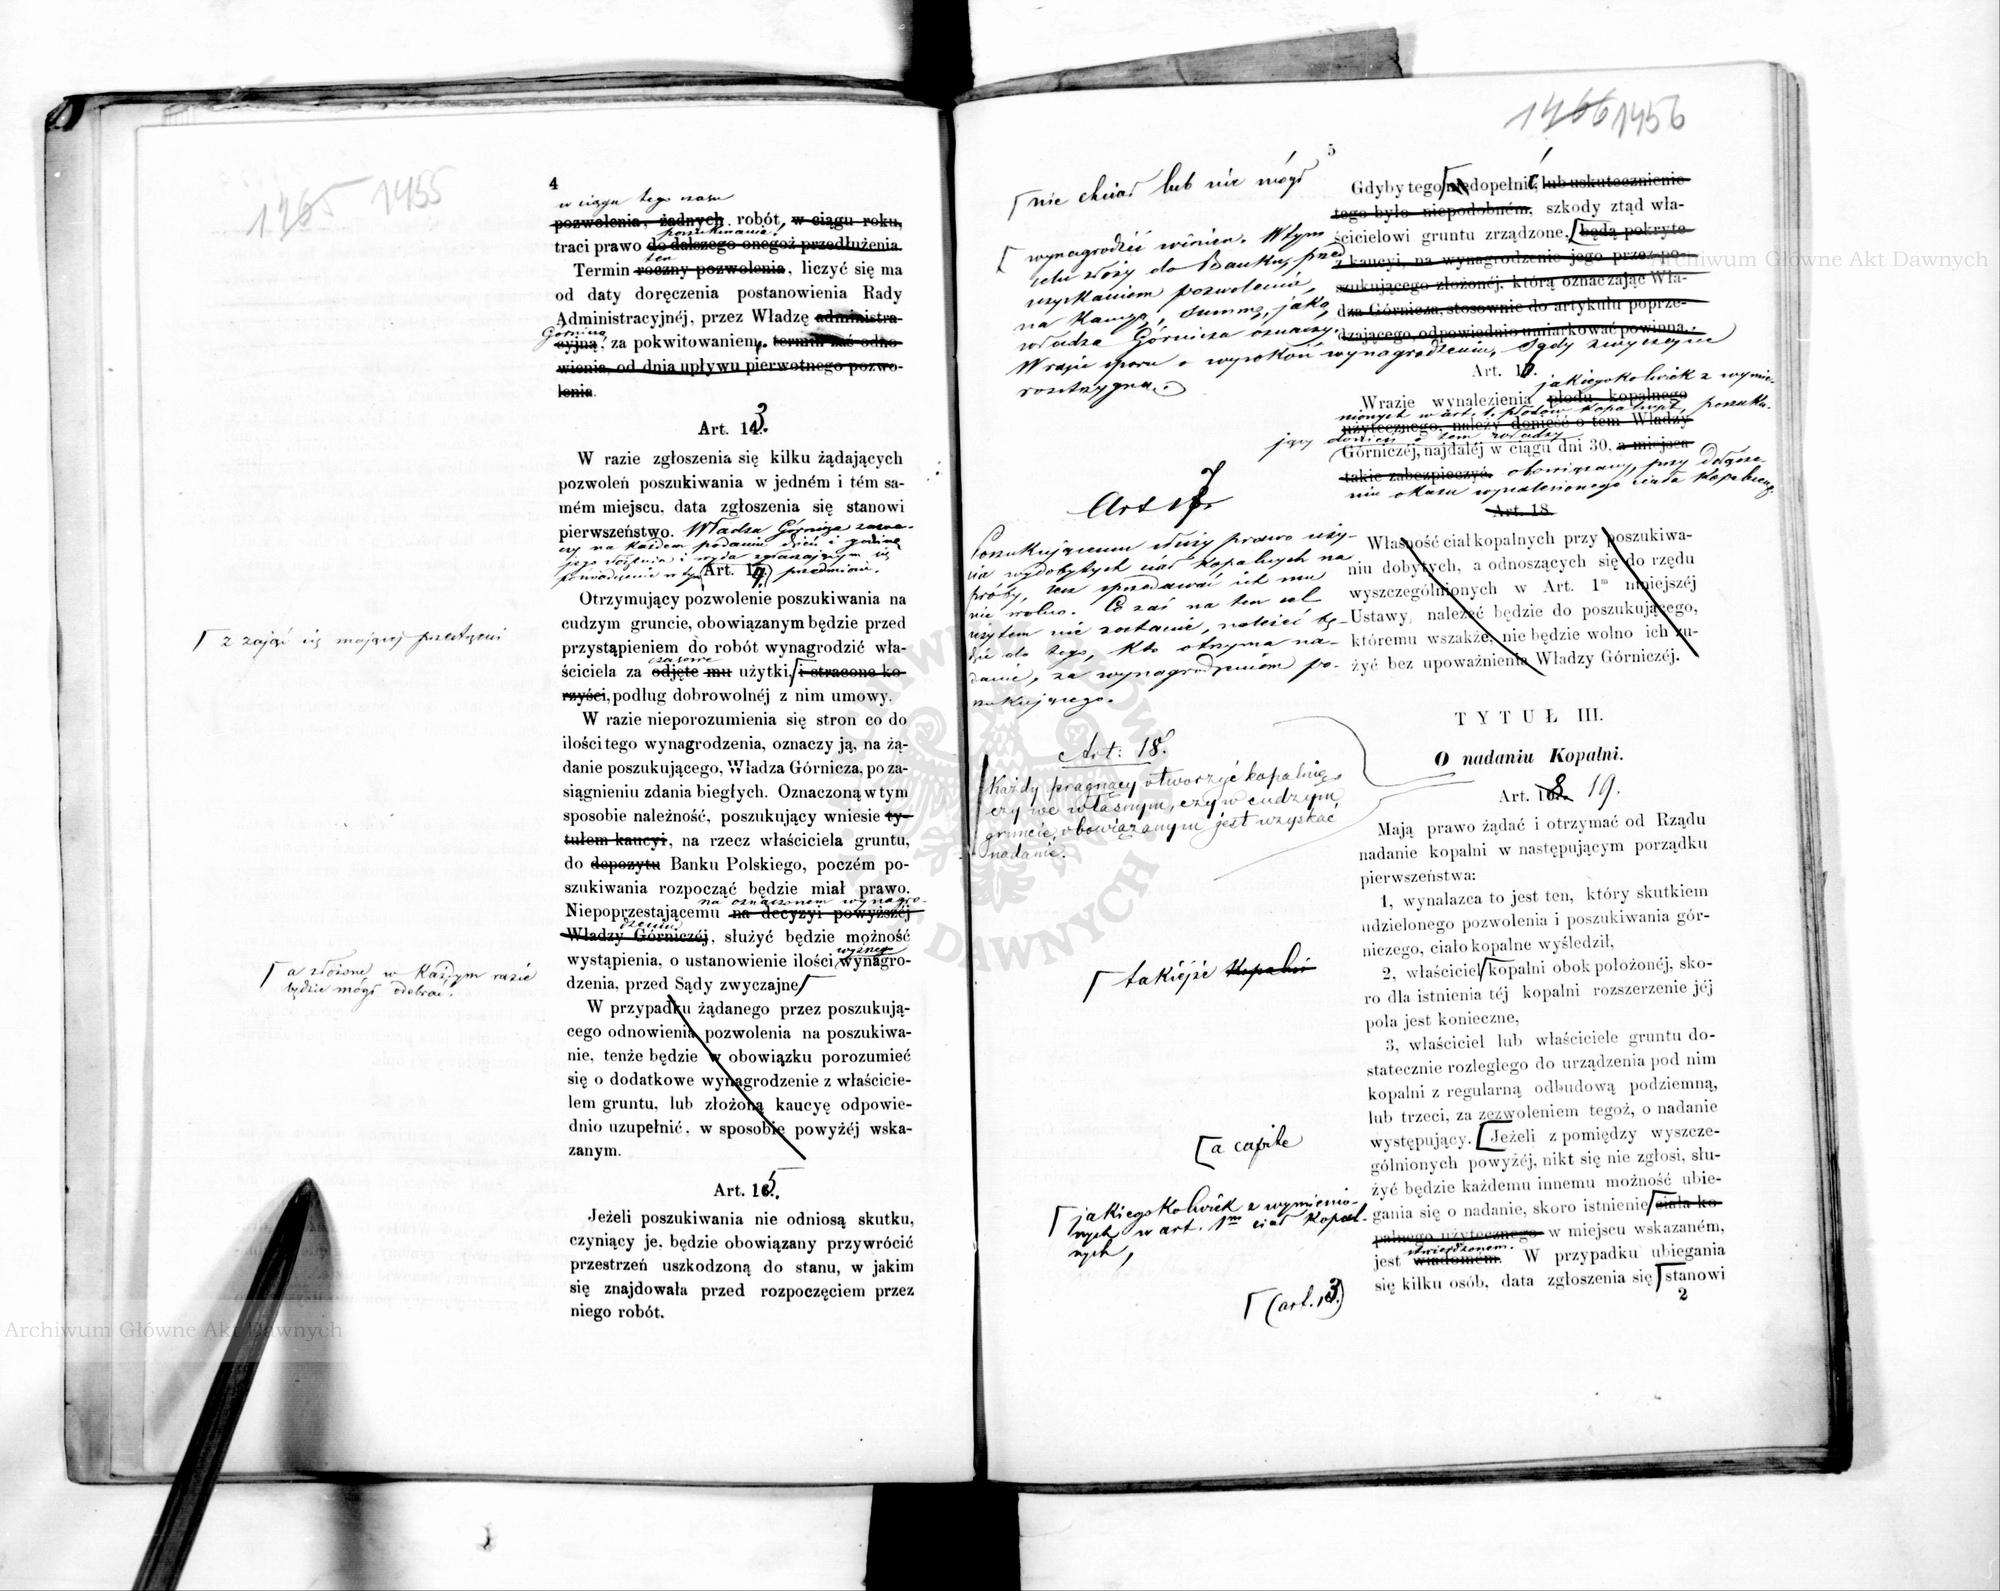 1265 1455
4
w ciągu tego czasu
pozwolenia, żadnych robót, w ciągu roku,
poszukiwania!
traci prawo do dalszego onegoż przedłużenia.
ten
Termin roczny pozwolenia, liczyć się ma
od daty doręczenia postanowienia Rady
Administracyjnéj, przez Władzę administra-
Górniczą
cyjną, za pokwitowaniem, termin zaś odno-
wienia, od dnia upływu pierwotnego pozwo-
lenia.
Art. 13.
W razie zgłoszenia się kilku żądających
pozwoleń poszukiwania w jedném i tém sa-
mém miejscu, data zgłoszenia się stanowi
pierwszeństwo. Władza Górnicza zazna-
czy na każdem podaniu dzień i godzinę
jego złożenia i wyda zgłaszającym się
poświadczenie w tym przedmiocie.
Art. 14.
Otrzymujący pozwolenie poszukiwania na
cudzym gruncie, obowiązanym będzie przed
przystąpieniem do robót wynagrodzić wła-
czasowe
ściciela za odjęte mu użytki, i stracone ko-
rzyści, podług dobrowolnéj z nim umowy.
z zająć się mającej przestrzeni
W razie nieporozumienia się stron co do
ilości tego wynagrodzenia, oznaczy ją, na żą-
danie poszukującego, Władza Górnicza, po za-
siągnieniu zdania biegłych. Oznaczoną w tym
sposobie należność, poszukujący wniesie ty-
tułem kaucyi, na rzecz właściciela gruntu,
do depozytu Banku Polskiego, poczém po-
szukiwania rozpocząć będzie miał prawo.
na oznaczonem wynagro-
Niepoprzestającemu na decyzyi powyższéj
dzeniu
Władzy Górniczéj, służyć będzie możność
wystąpienia, o ustanowienie ilości wynagro-
dzenia, przed Sądy zwyczajne
a złożone, w każdym razie
będzie mógł odebrać.
W przypadku żądanego przez poszukują-
cego odnowienia pozwolenia na poszukiwa-
nie, tenże będzie w obowiązku porozumieć
się o dodatkowe wynagrodzenie z właścicie-
lem gruntu, lub złożoną kaucyę odpowie-
dnio uzupełnić, w sposobie powyżéj wska-
zanym.
Art. 15.
Jeżeli poszukiwania nie odniosą skutku,
czyniący je, będzie obowiązany przywrócić
przestrzeń uszkodzoną do stanu, w jakim
się znajdowała przed rozpoczęciem przez
niego robót.
1266 1456
5
nie chciał lub nie mógł
Gdyby tego niedopełnił, lub uskutecznienie
tego było niepodobném, szkody ztąd wła-
ścicielowi gruntu zrządzone, będą pokryte
z kaucyi, na wynagrodzenie jego przez po-
szukującego złożonéj, którą oznaczając Wła-
dza Górnicza, stosownie do artykułu poprze-
dzającego, odpowiednio umiarkować powinna.
wynagrodzić winien. W tym
celu złoży do Banku, przed
uzyskaniem pozwolenia,
na kaucyę, summę, jaką
władza Górnicza oznaczy.
W razie sporu o wysokość wynagrodzenia, Sądy zwyczajne
rozstrzygną.
Art. 1
jakiegokolwiek z wymie-
Wrazie wynalezienia płodu kopalnego
nionych w art. 1. płodów kopalnych, poszuku-
użytecznego, należy donieść o tem Władzy
jący donieść o tem władzy
Górniczéj, najdaléj w ciągu dni 30, a miejsca
takie zabezpieczyć. obowiązany, przy dołącze-
niu okazu wynalezionego ciała kopalnego.
Art. 18.
Art 17
Poszukującemu służy prawo uży-
cia wydobytych ciał kopalnych na
próby, lecz sprzedawać ich mu
nie wolno. Co zaś na ten cel
użytem nie zostanie, należeć bę-
dzie do tego, kto otrzyma na-
danie, za wynagrodzeniem po-
szukującego.
Własność ciał kopalnych przy poszukiwa-
niu dobytych, a odnoszących się do rzędu
wyszczególnionych w Art. 1m niniejszéj
Ustawy, należeć będzie do poszukującego,
któremu wszakże, nie będzie wolno ich zu-
żyć bez upoważnienia Władzy Górniczéj.
TYTUŁ III.
O nadaniu Kopalni.
Art: 18.
Każdy pragnący otworzyć kopalnię,
czy we własnym, czy w cudzym
gruncie, obowiązanym jest uzyskać
nadanie.
Art. 19.
Mają prawo żądać i otrzymać od Rządu
nadanie kopalni w następującym porządku
pierwszeństwa:
1, wynalazca to jest ten, który skutkiem
udzielonego pozwolenia i poszukiwania gór-
niczego, ciało kopalne wyśledził,
takiejże kopalni
2, właściciel kopalni obok położonéj, sko-
ro dla istnienia téj kopalni rozszerzenie jéj
pola jest konieczne,
3, właściciel lub właściciele gruntu do-
statecznie rozległego do urządzenia pod nim
kopalni z regularną odbudową podziemną,
lub trzeci, za zezwoleniem tegoż, o nadanie
występujący. Jeżeli z pomiędzy wyszcze-
a capite
gólnionych powyżéj, nikt się nie zgłosi, słu-
żyć będzie każdemu innemu możność ubie-
gania się o nadanie, skoro istnienie ciała ko-
palnego użytecznego w miejscu wskazaném,
stwierdzonem.
jest wiadomém. W przypadku ubiegania
się kilku osób, data zgłoszenia się stanowi
jakiegokolwiek z wymienio-
nych w art. 1m ciał kopal-
nych,
(art. 13)
2
Archiwum Główne Akt Dawnych
Archiwum Główne Akt Dawnych
ARCHIWUM GŁÓWNE AKT DAWNYCH